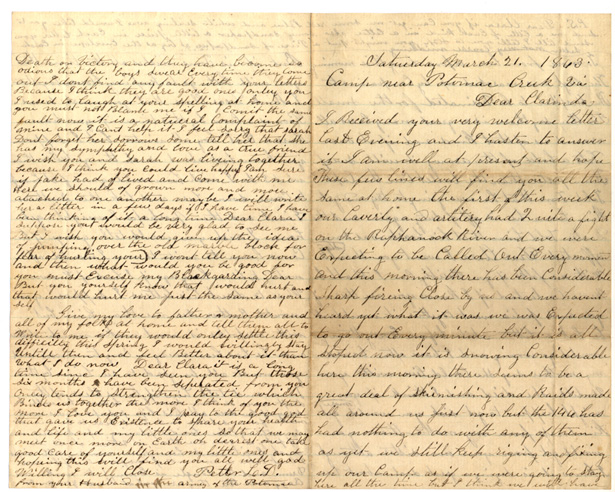 Saturday March 21. 1863.
Camp near Potomac Creek Va
Dear Clarinda.
I Received your very welcome letter
last Evening and I hasten to answer
it I am well at present and hope
these few lines will find you all the
same at home the first of this week
our Caverly and artilery had quite a fight
on the Raphanock River and we were
Expecting to be Called Out Every minute
And this morning there has been Considerable
Sharp fireing Close by us and we havent
heard yet what it was we was Expected
to go out Every minute but it is all
stoped now it is snowing Considerable
here this morning there seems to be a
great deal of skirmishing and Raids made
all around us first now but the has
had nothing to do with any of them
as yet we still keep and fixing
up our Camps as if we were going to stay
here all the time but I think we will have
Death on Victory and they have become so
odious that the boys swear Every time they come
out I dont find any fault with your letters
Because I think they are good ones only you
used to laugh at your spelling at home and
you must not Blame me if I Comit the same
fault now it is a natural Complaint of
mine and I Cant help it I feel sorry that Sarah
Dont forget her sorrows some tell her that she
has my sympathy and love as a true friend
I wish you and Sarah was liveing together
because I think you Could live happy I am sure
if Jake had of lived and Come with me
that we should of grown more and more
atached to one another maybe I will write
her a letter in a few days if I have time I have
been thinking of it a long time Dear Clara I
suppose you would be very glad to see me
but I wish you would give up the idea
of jumping over the old mason Block for
fear of hurting your I wont tell you now
and then what would you be good for
you must Excuse my Blackgarding Dear
But you yourself know that would hurt and
that would hurt me just the same as your
self
Give my love to father & mother and
all of my folks at home and tell them all to
Write to me if they would only settle this
dificulty this Spring I would willingly stay
untill then and feel Better about it than
what I do now Dear Clara it is a long
time since I have seen you But these
six months I have been seperated from you
Only tends to strengthen the tie which
Binds us together the more I think of you the
more I Love you and I pray to the good god
that gave us Existence to spare your husband
and life and my little ones so that we may
meet once more on Earth oh dearest one take
good Care of yourself and my little ones and
hopeing this will find you all well god
Willing I will Close
from your Husband army of the Potomac